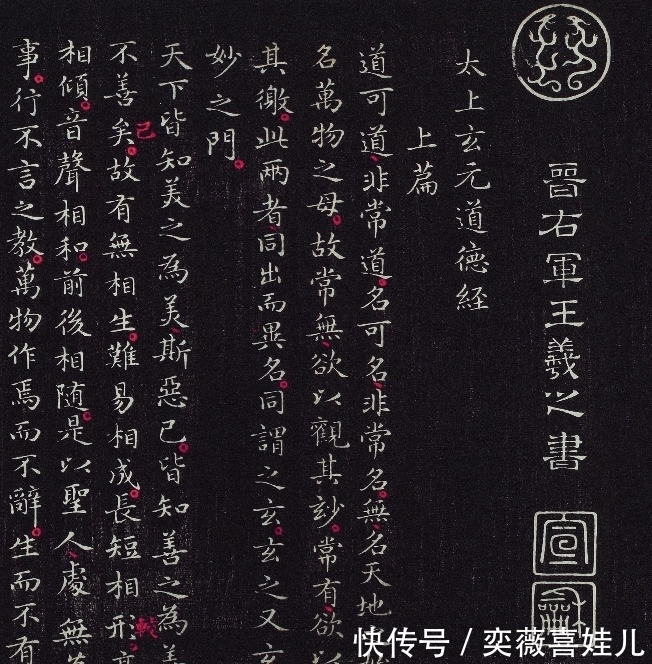 晉右軍王羲之書
宣
太上玄元道德経
上篇
道可道非常道名可名非常名無名天地
名萬物之母故常無欲以觀其玅常有欲以
其徼此两者同出而異名同謂之玄玄之又玄
妙之門
天下皆知美之為美斯惡已皆知善之為
不善矣故有無相生難易相成長短相形
己
相傾音聲相和前後相随是以聖人處無
事行不言之教萬物作焉而不辭生而不有
快传号 / 奕薇喜娃儿